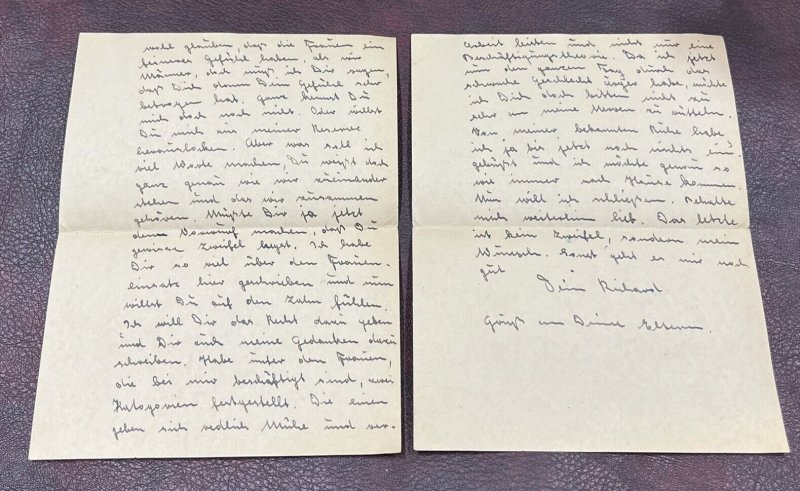 wohl glauben, daß die Frauen ein
feineres Gefühl haben, als wir
Männer, doch muß ich Dir sagen,
daß Dich dann Dein Gefühl sehr
betrogen hat. Ganz kennst Du
mich doch noch nicht. Oder willst
Du mich aus meiner Reserve
herauslocken. Aber was soll ich
viel Worte machen, Du weißt doch
ganz genau wie wir zueinander
stehen und das wir zusammen
gehören. Müßte Dir ja jetzt
den Vorwurf machen, daß Du
gewisse Zweifel hegst. Ich habe
Dir so viel über den Frauen-
einsatz hier geschrieben und nun
willst Du auf den Zahn fühlen.
Ich will Dir das Recht dazu geben
und Dir auch meine Gedanken dazu
schreiben. Habe unter den Frauen,
die bei mir beschäftigt sind, zwei
Katogorien festgestellt. Die einen
geben sich redlich Mühe und ver-
Arbeit leisten und nicht nur eine
Beschäftigungstheorie. Da ich jetzt
um den ganzen Tag durch das
schwache Geschlecht Ärger habe, möchte
ich Dich doch bitten nicht zu
sehr an meine Nerven zu rütteln.
Von meiner bekannten Ruhe habe
ich ja bis jetzt noch nichts ein-
gebüßt und ich möchte genau so
wie immer nach Hause kommen.
Nun will ich schließen. Behalte
mich weiterhin lieb. Das letzte
ist kein Zweifel, sondern mein
Wunsch. Sonst geht es mir noch
gut
Dein Richard
Grüße an Deine Eltern.